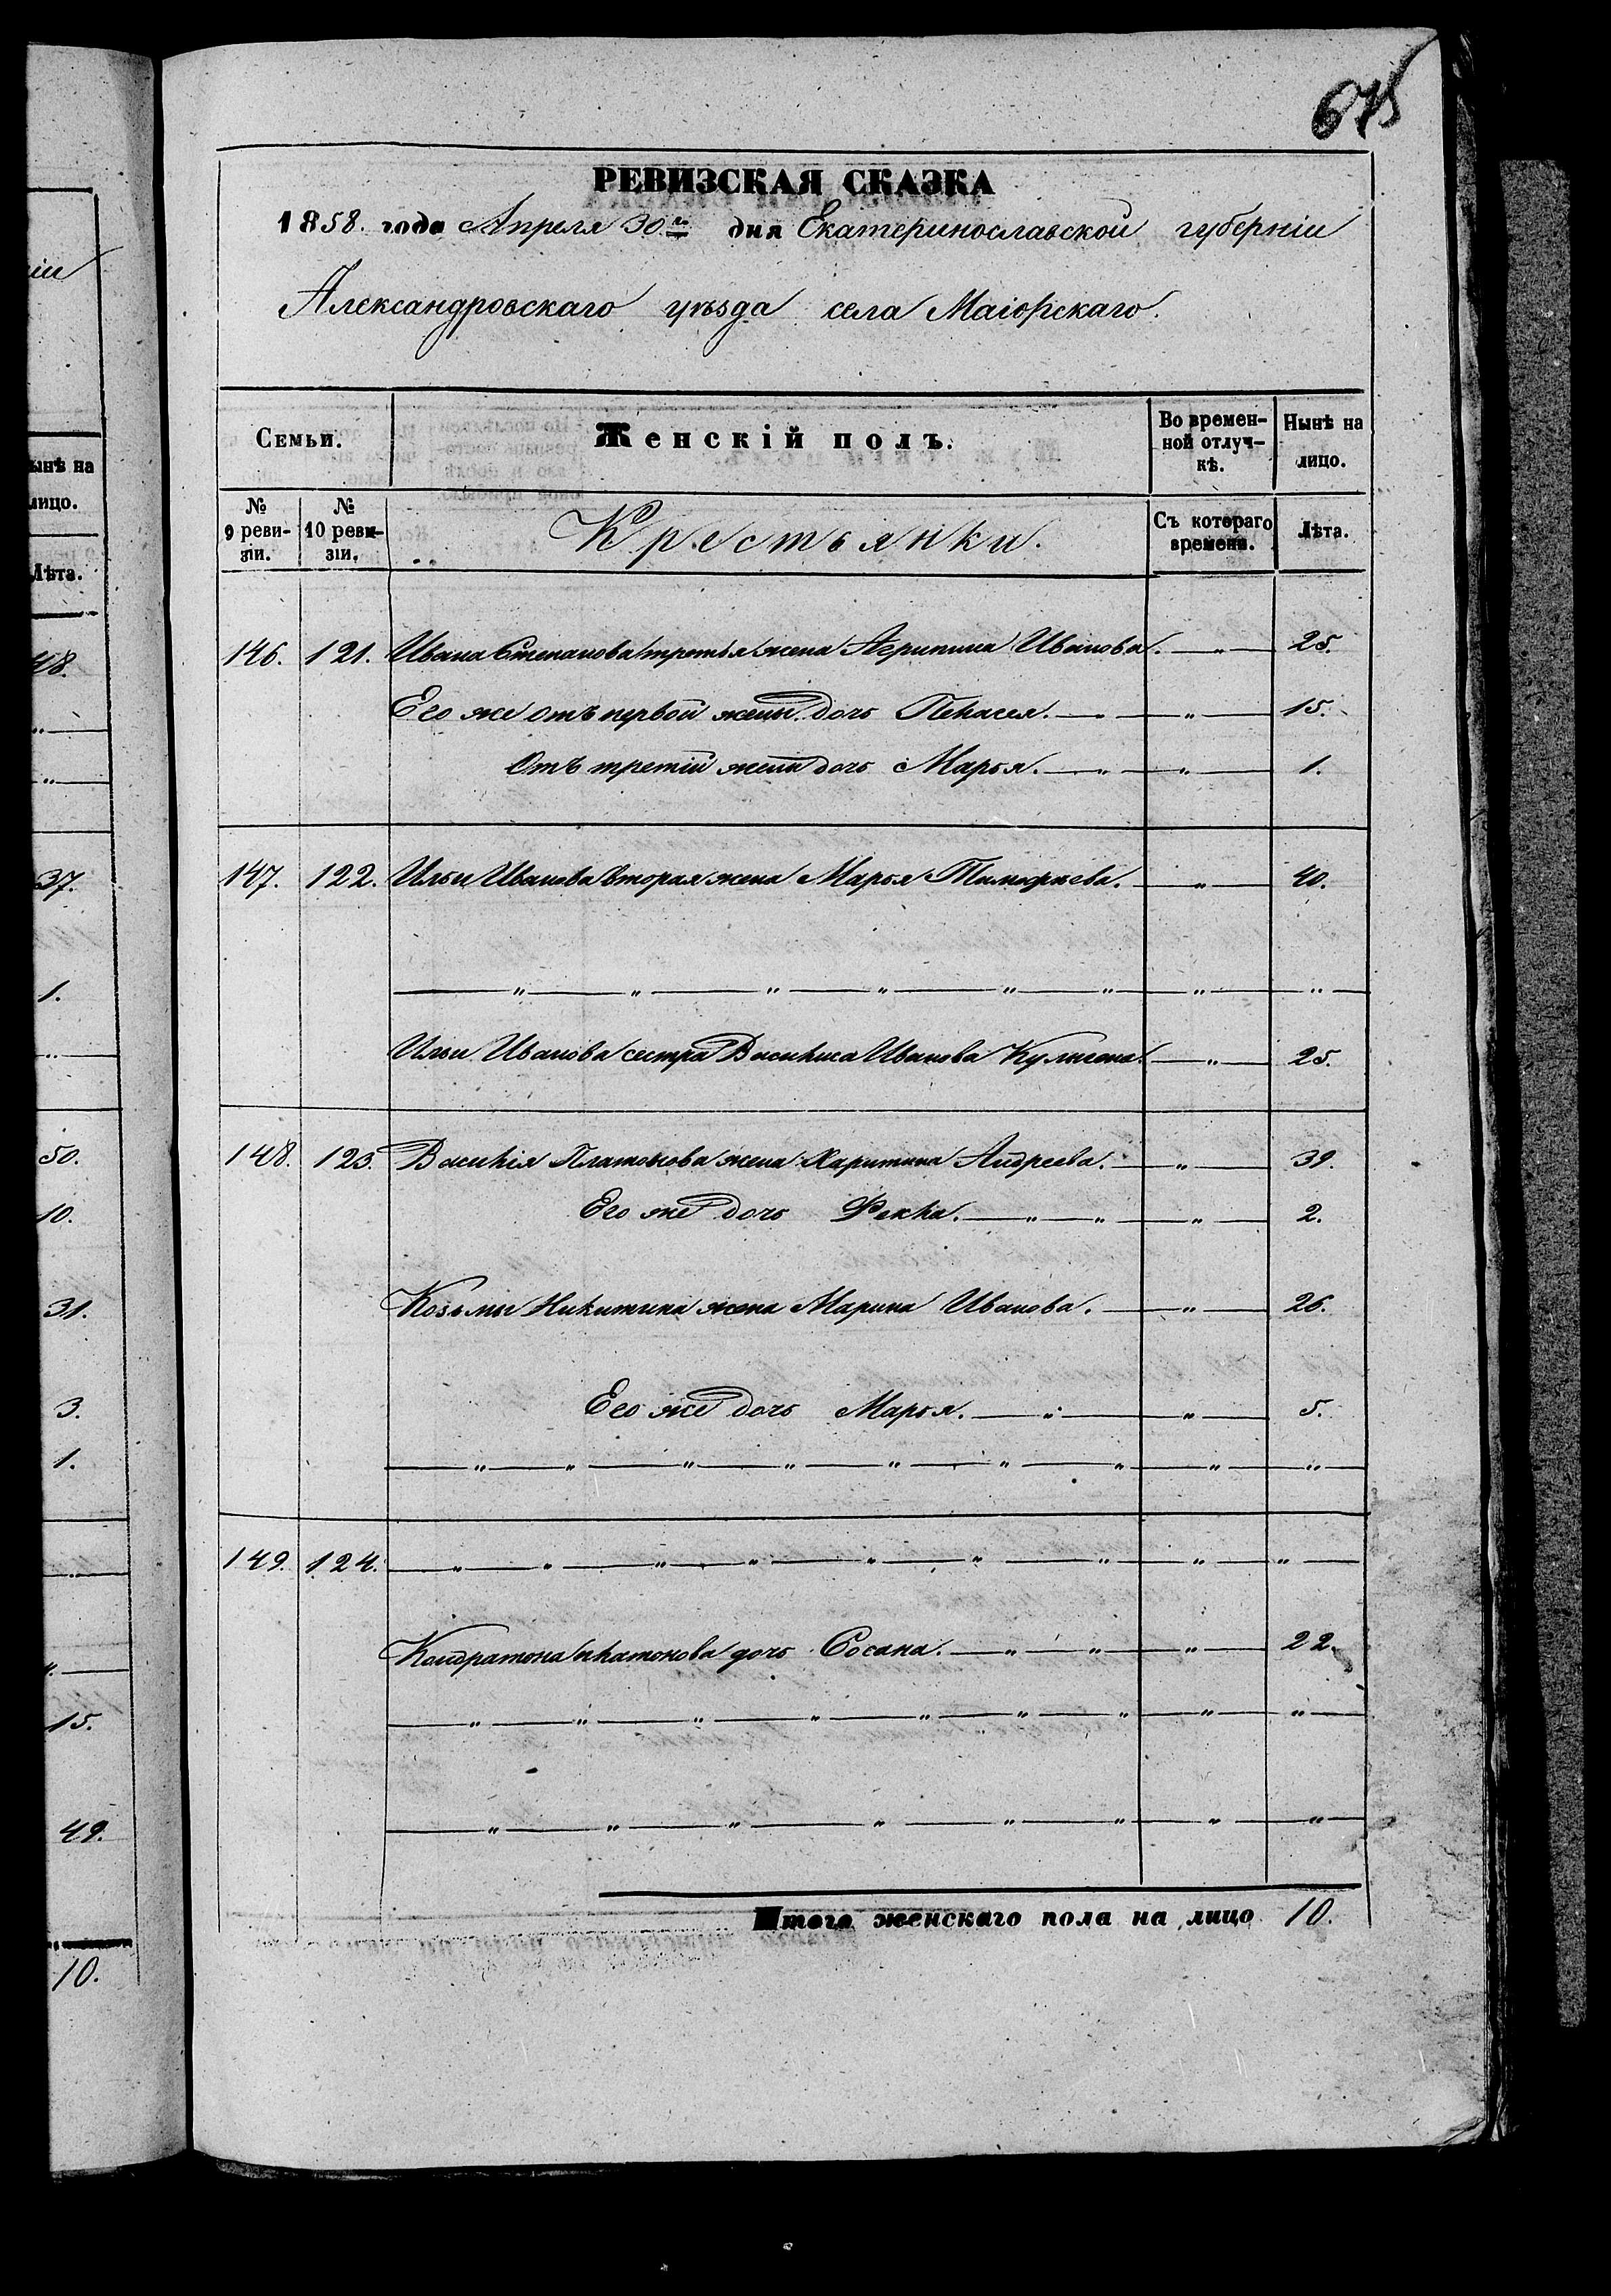 675
РЕВИЗСКАЯ СКАЗКА
1858. года Апреля 30го дня Екатеринославской губернiи
Александровскаго уѣзда села Маiорскаго.
Семьи. Женскiй полъ. Во времен- Нынѣ на
ной отлуч- лицо.
кѣ.
№ № Крестьянки. Съ котораго Лѣта.
9 реви- 10 реви- времени.
зiи. зiи.
146. 121. Ивана Степанова третья жена Агрипина Иванова. — „ — 25.
Его же отъ первой жены дочь Пекасея. — „ — „ — 15.
Отъ третiй жены дочь Марья. — „ — „ — 1.
147. 122. Ильи Иванова вторая жена Марья Тимофеева. — „ — 40.
— „ — „ — „ — „ — „ — „ — „ — „ —
Ильи Иванова сестра Василиса Иванова — „ — 25.
148. 123. Василiя Платонова жена Харитина Андреева. — „ — 39.
Его же дочь Фекла. — „ — „ — „ — 2.
Козьмы Никитина жена Марина Иванова. — „ — 26.
Его же дочь Марья. — „ — „ — 5.
— „ — „ — „ — „ — „ — „ — „ — „ — „ —
149. 124. — „ — „ — „ — „ — „ — „ — „ — „ — „ —
дочь Сосана. — „ — „ — „ — 22.
— „ — „ — „ — „ — „ — „ — „ — „ — „ —
— „ — „ — „ — „ — „ — „ — „ — „ —
Итого женскаго пола на лицо 10.
iи
ынѣ на
лицо.
Лѣта.
48.
„ —
„ —
37.
1.
„ —
50.
10.
31.
3.
1.
„ —
„ —
15.
49.
10.